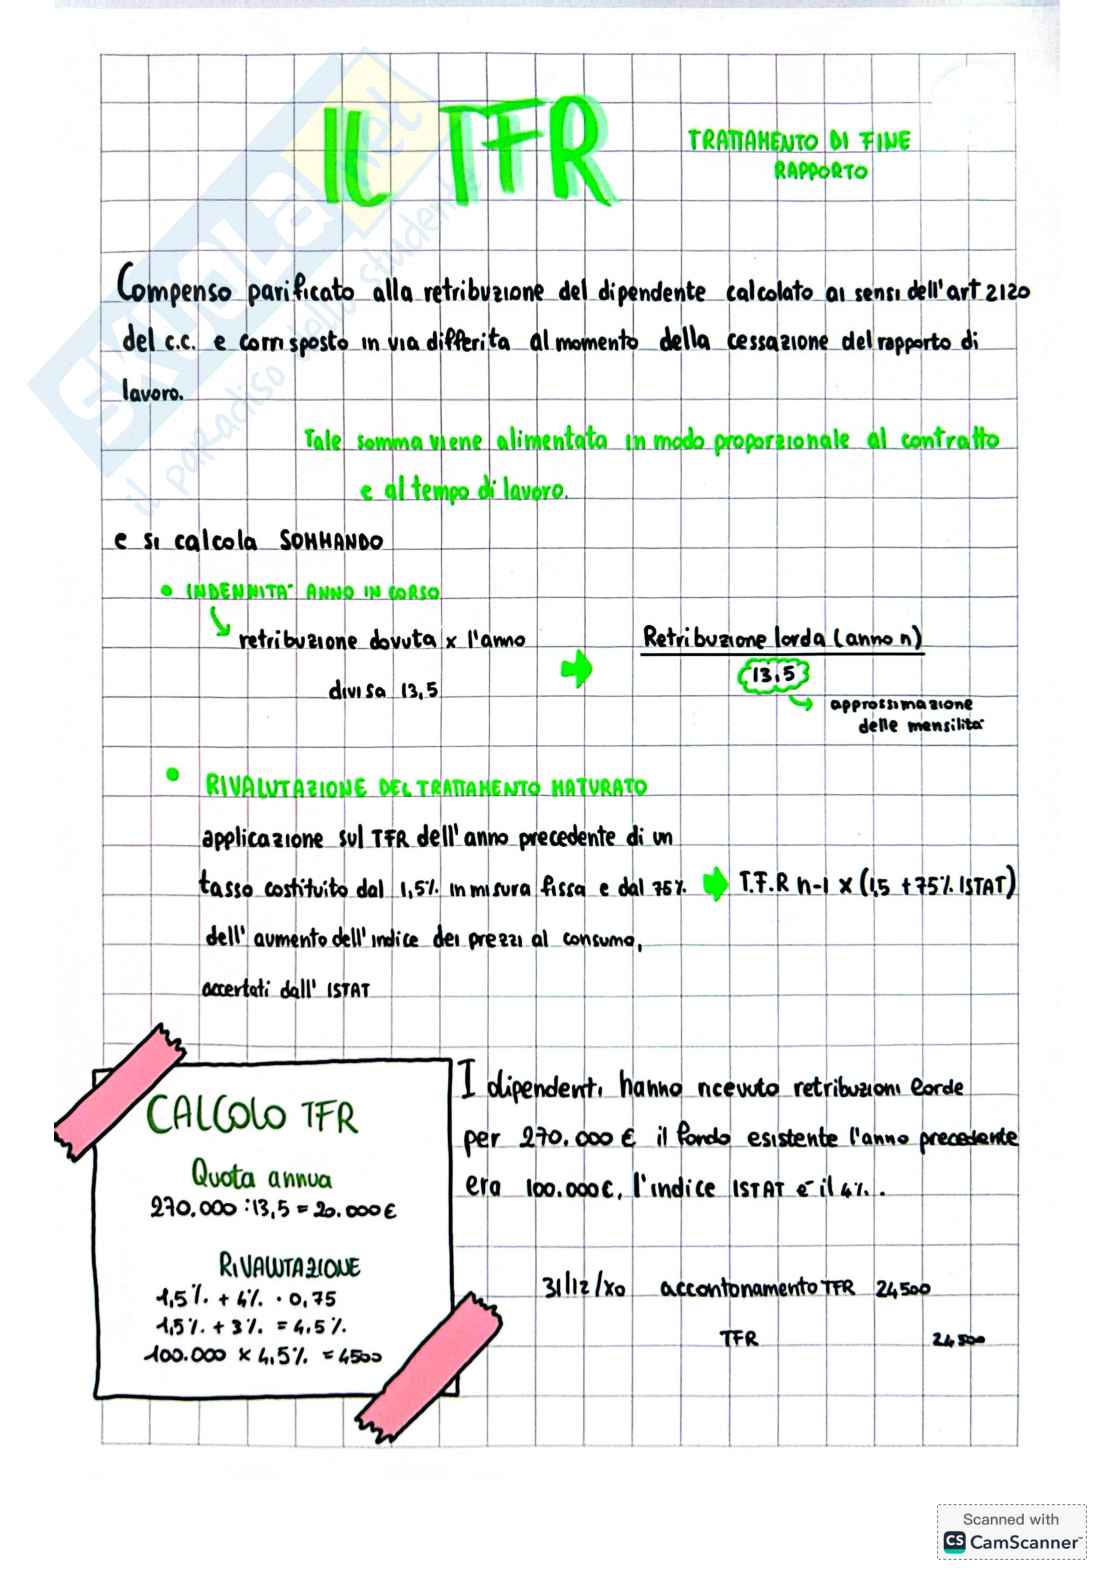 IL TFR
TRATTAMENTO DI FINE
RAPPORTO
Compenso parificato alla retribuzione del dipendente calcolato ai sensi dell'art 2120
del c.c. e corrisposto in via differita al momento della cessazione del rapporto di
lavoro.
Tale somma viene alimentata in modo proporzionale al contratto
e al tempo di lavoro.
e si calcola SOMMANDO
• INDENNITA' ANNO IN CORSO
retribuzione dovuta x l'anno
divisa 13,5
Retribuzione lorda (anno n)
13,5
approssimazione
delle mensilità
• RIVALUTAZIONE DEL TRATTAMENTO MATURATO
applicazione sul TFR dell'anno precedente di un
tasso costituito dal 1,5% in misura fissa e dal 75%
dell'aumento dell'indice dei prezzi al consumo,
accertati dall'ISTAT
T.F.R n-1 x (1,5 + 75% ISTAT)
CALCOLO TFR
Quota annua
270.000 : 13,5 = 20.000 €
RIVALUTAZIONE
1,5% + 4% · 0,75
1,5% + 3% = 4,5%
100.000 x 4,5% = 4500
I dipendenti hanno ricevuto retribuzioni lorde
per 270.000 € il fondo esistente l'anno precedente
era 100.000€, l'indice ISTAT è il 4%.
31/12/x0 accontonamento TFR 24500
TFR 24500
SKUOLA.net
il paradiso dello studente
Scanned with
CS CamScanner